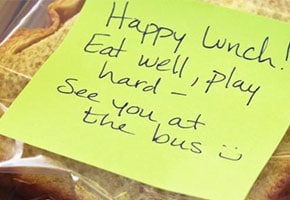 Happy lunch!
Eat well, play
hard –
See you at
the bus ☺